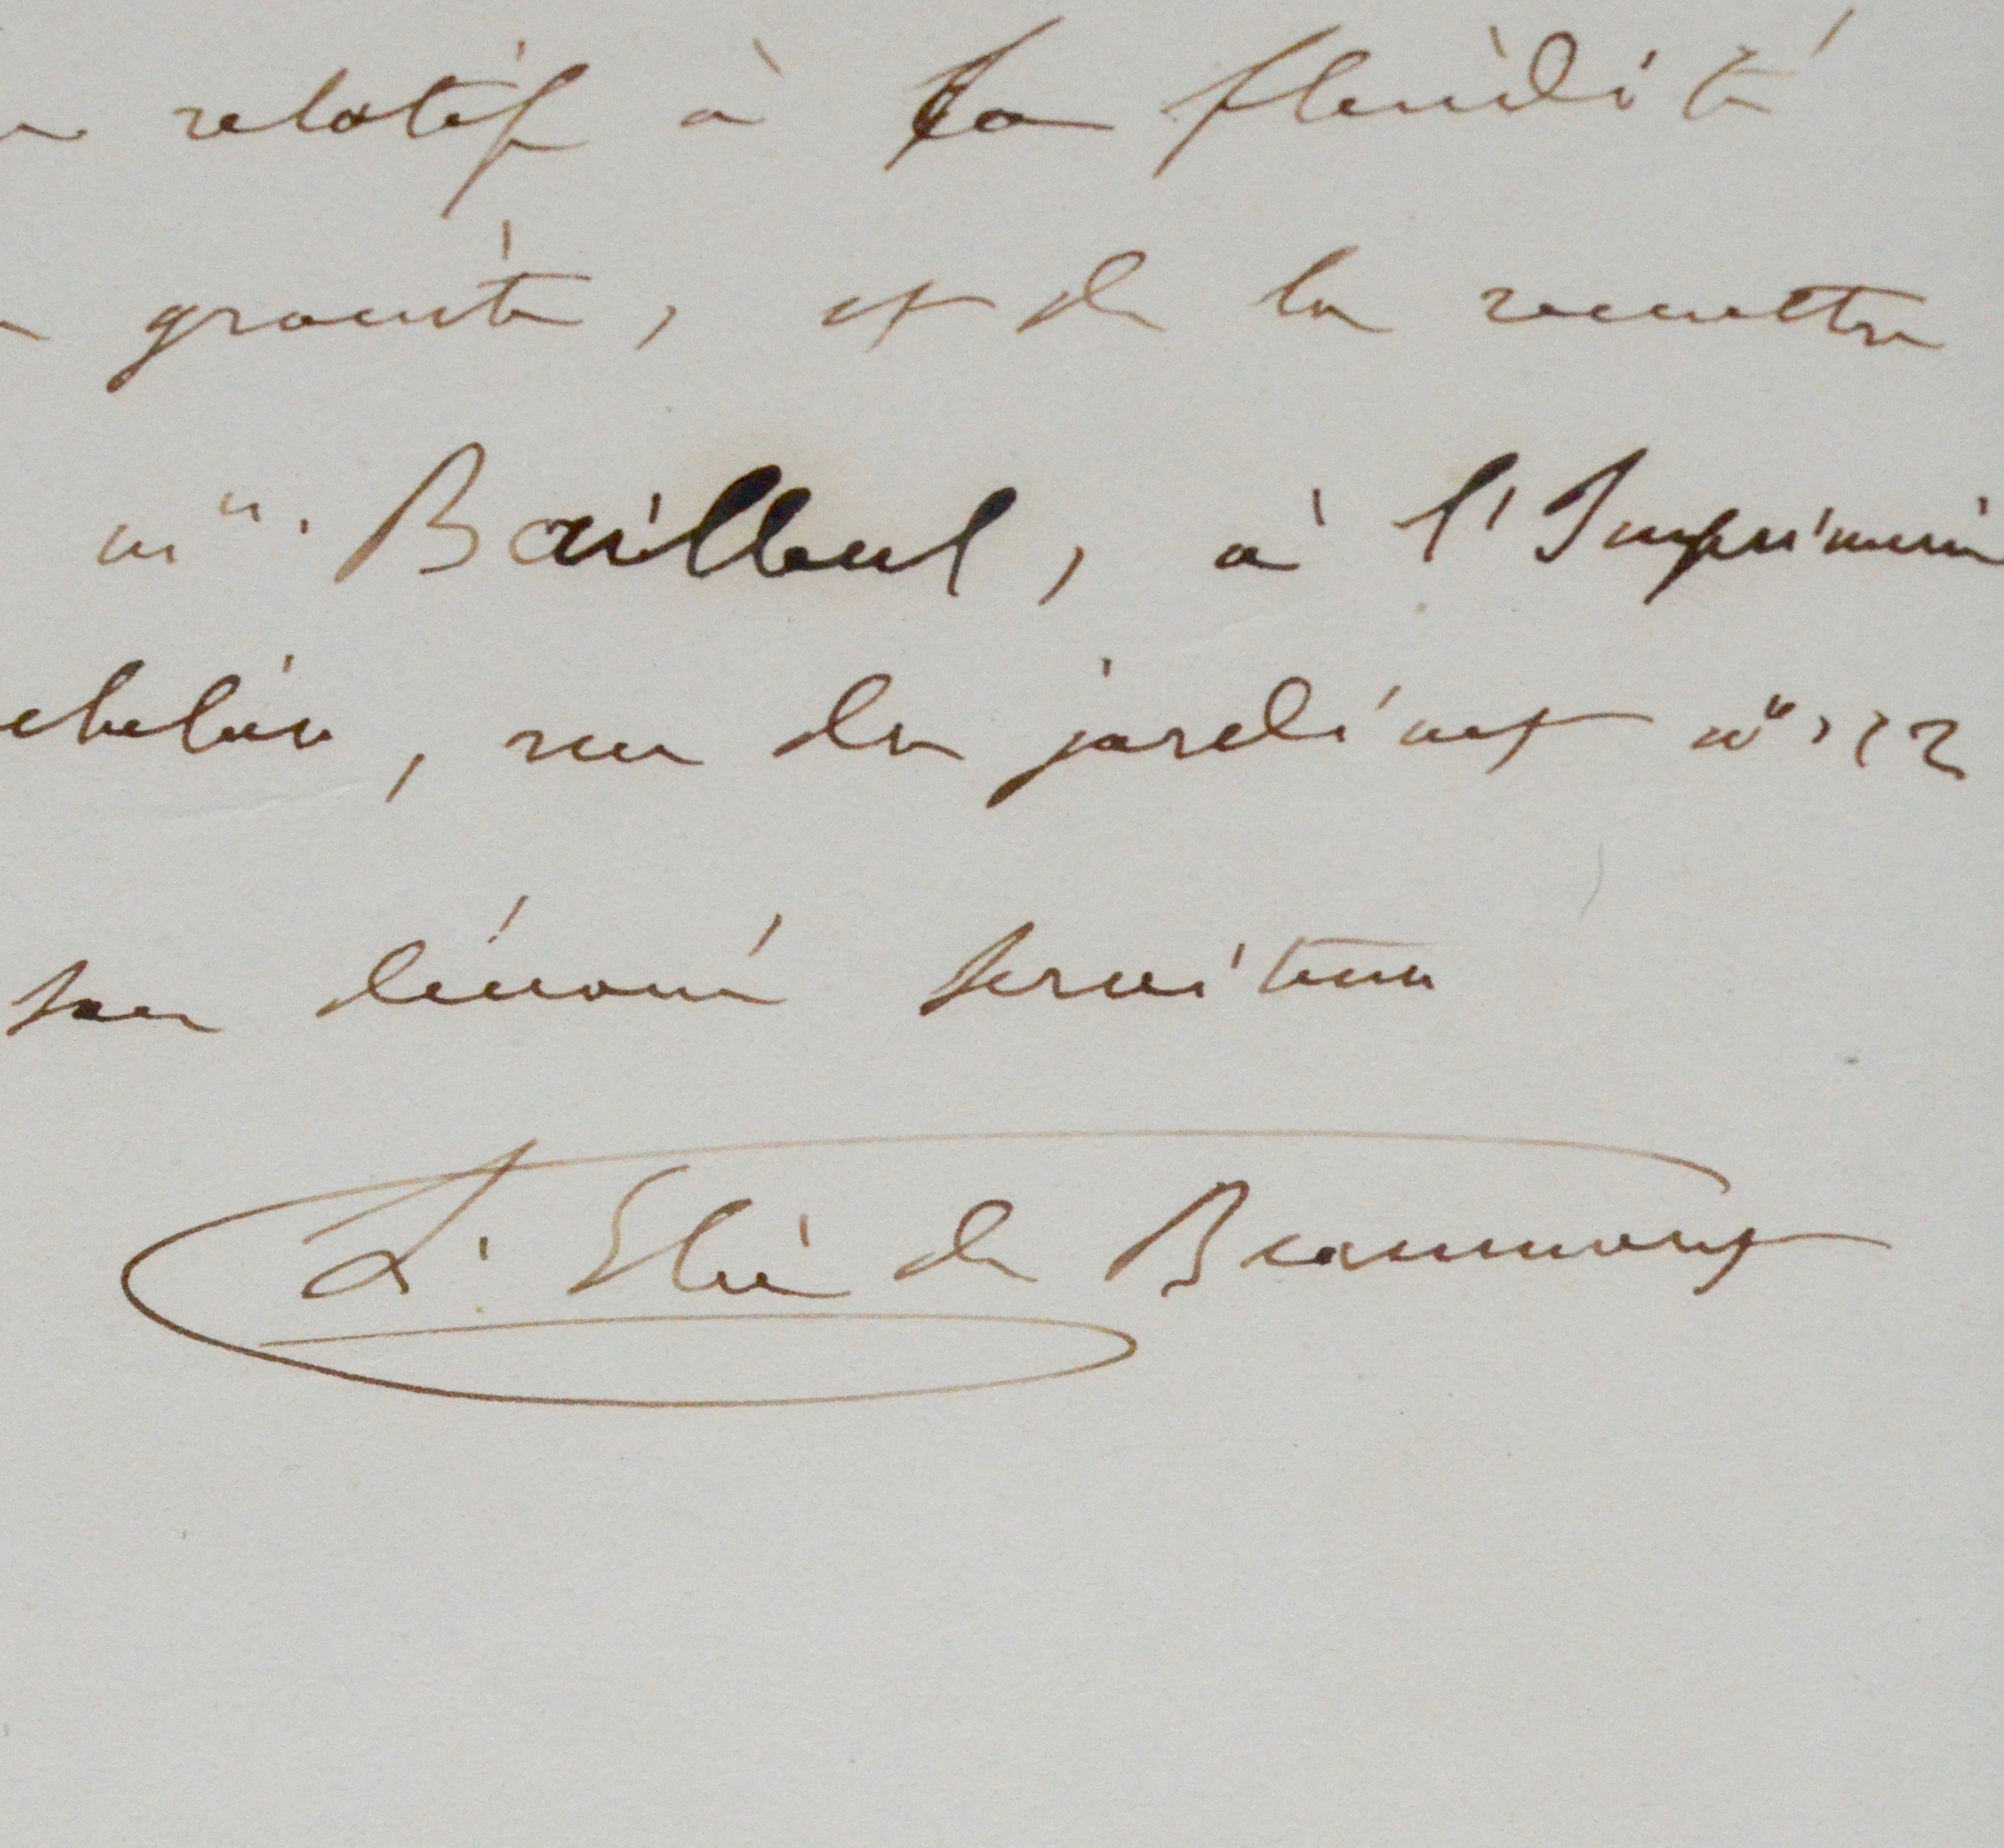 relatif à la fluidité
granite, et de la remettre
mr. Bailleul, à l'Imprimerie
chelier, rue du jardinet n°. 12
son dévoué serviteur
L. Elie de Beaumont